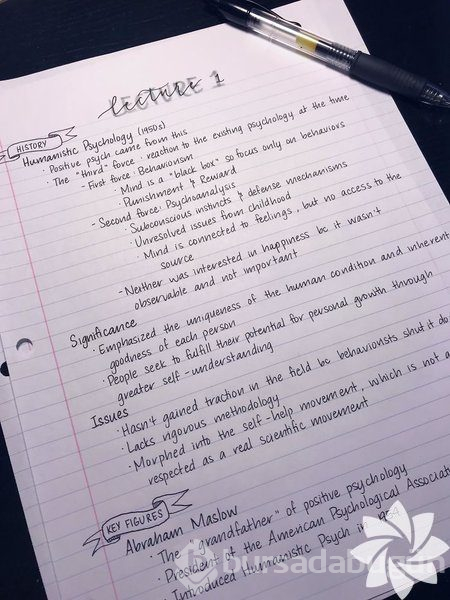 LECTURE
lecture 1
HISTORY
Humanistic Psychology (1950s)
· Positive psych came from this
· The "third" force : reaction to the existing psychology at the time
- First force: Behaviorism
· Mind is a "black box" so focus only on behaviors
· Punishment & Reward
- Second force: Psychoanalysis
· Subconscious instincts & defense mechanisms
· Unresolved issues from childhood
· Mind is connected to feelings, but no access to the
source
- Neither was interested in happiness bc it wasn't
observable and not important
Significance
· Emphasized the uniqueness of the human condition and inherent
goodness of each person
· People seek to fulfill their potential for personal growth through
greater self-understanding
Issues
· Hasn't gained traction in the field bc behaviorists shut it do
· Lacks rigorous methodology
· Morphed into the self-help movement, which is not a
respected as a real scientific movement
KEY FIGURES
Abraham Maslow
· The "grandfather" of positive psychology
· President of the American Psychological Associat
· Introduced Humanistic Psych in
bursadabugun